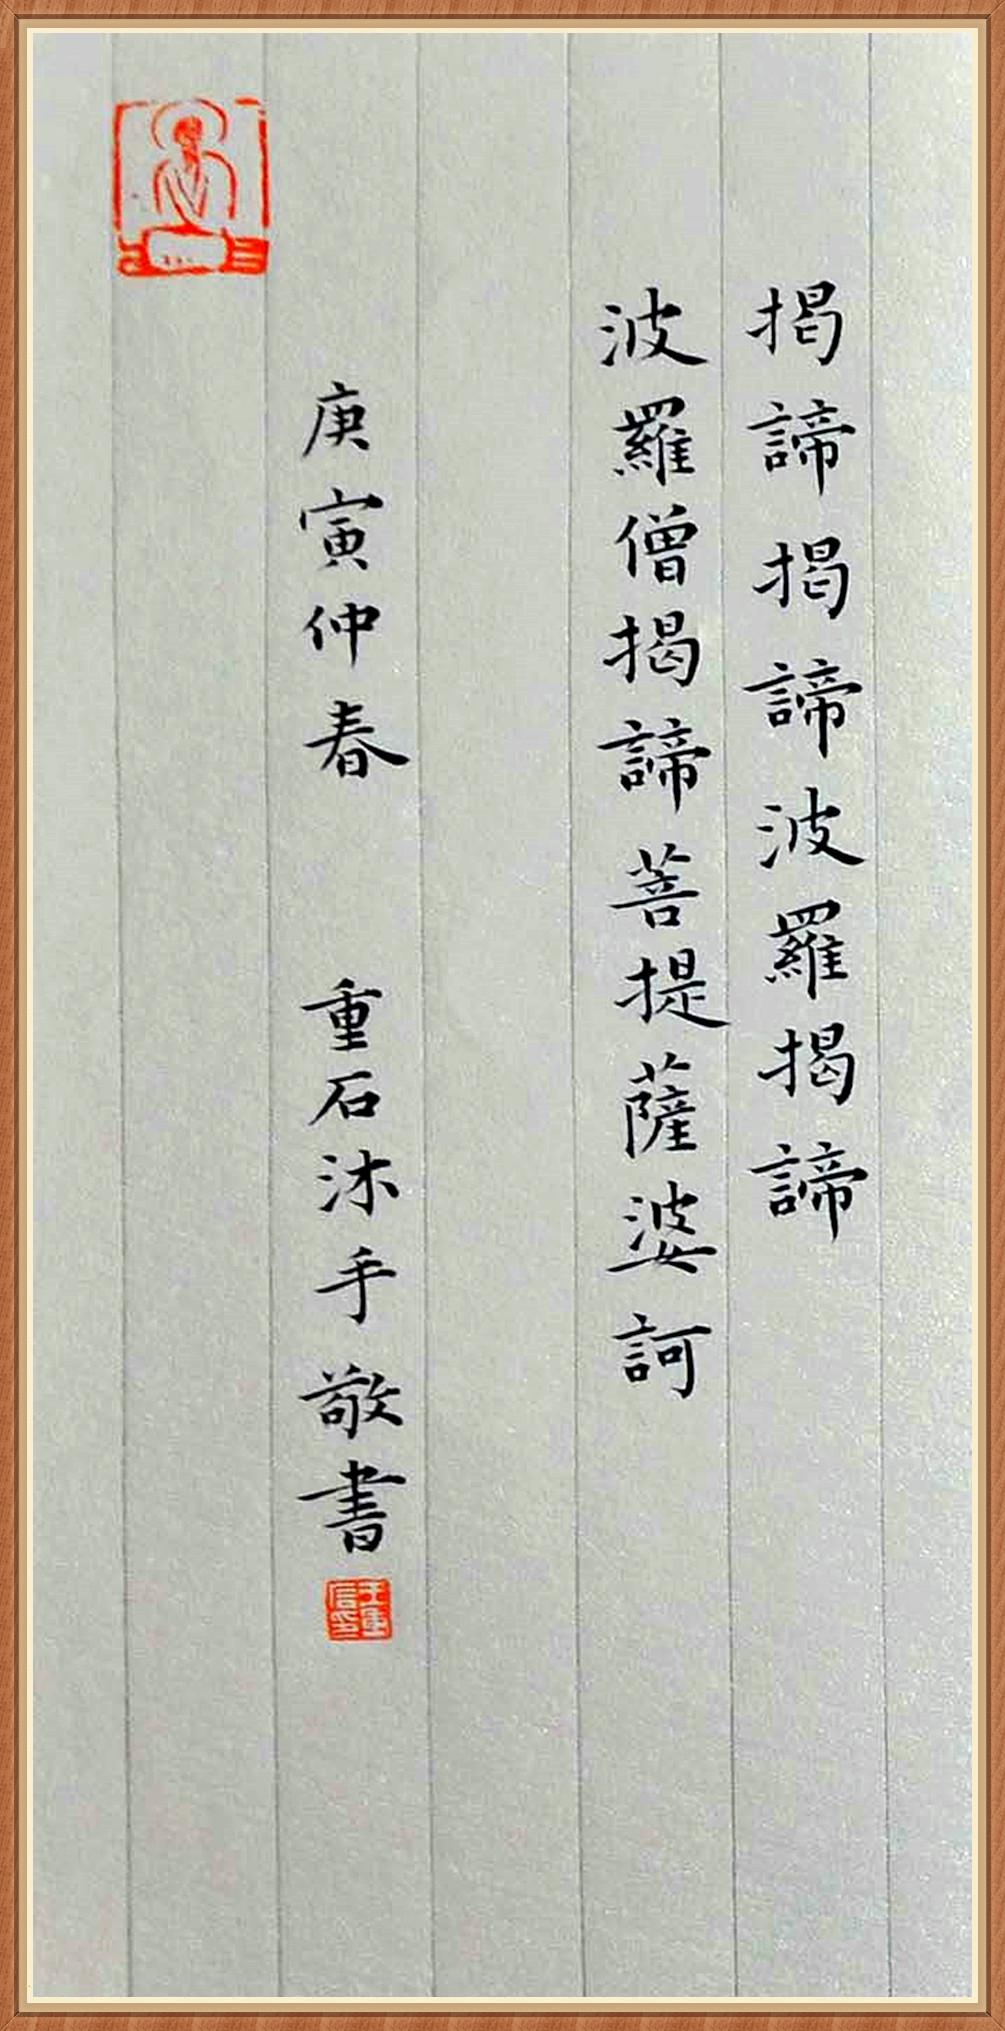 揭諦揭諦波羅揭諦
波羅僧揭諦菩提薩婆訶
庚寅仲春 重石沐手敬書